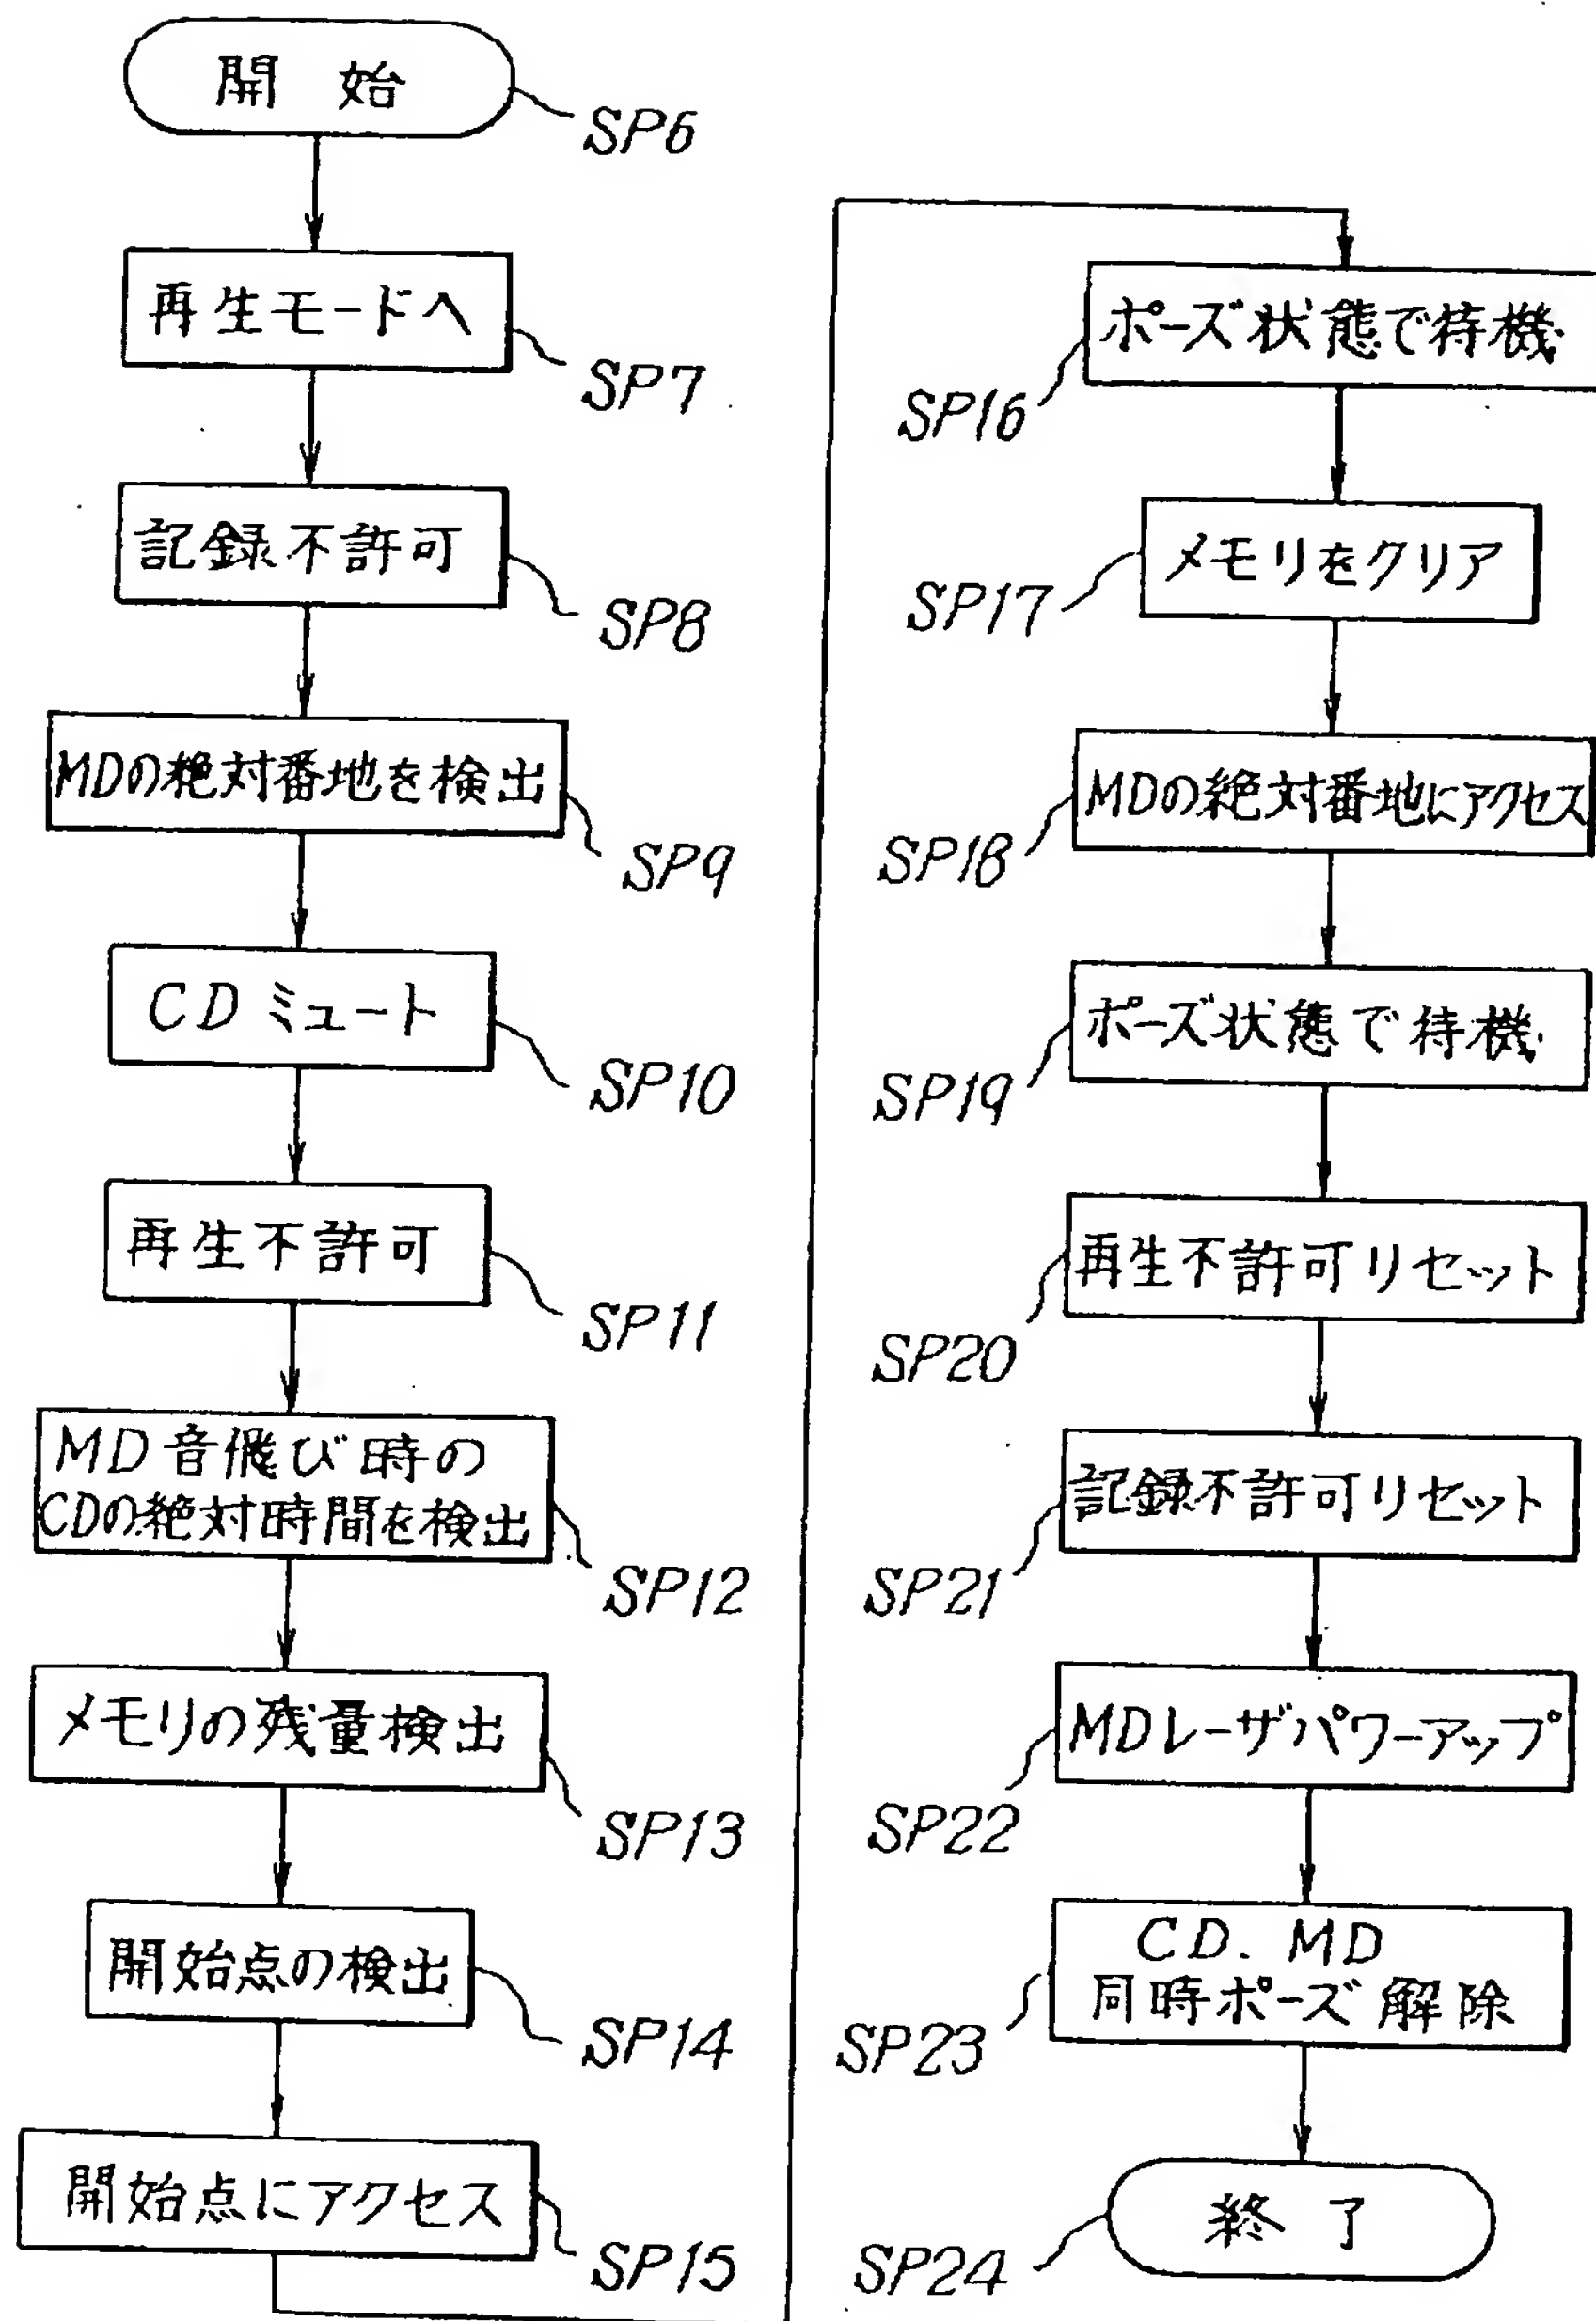 開始
SP6
再生モードへ
SP7
記録不許可
SP8
MDの絶対番地を検出
SP9
CDミュート
SP10
再生不許可
SP11
MD音飛び時の
CDの絶対時間を検出
SP12
メモリの残量検出
SP13
開始点の検出
SP14
開始点にアクセス
SP15
ポーズ状態で待機
SP16
メモリをクリア
SP17
MDの絶対番地にアクセス
SP18
ポーズ状態で待機
SP19
再生不許可リセット
SP20
記録不許可リセット
SP21
MDレーザパワーアップ
SP22
CD. MD
同時ポーズ解除
SP23
終了
SP24